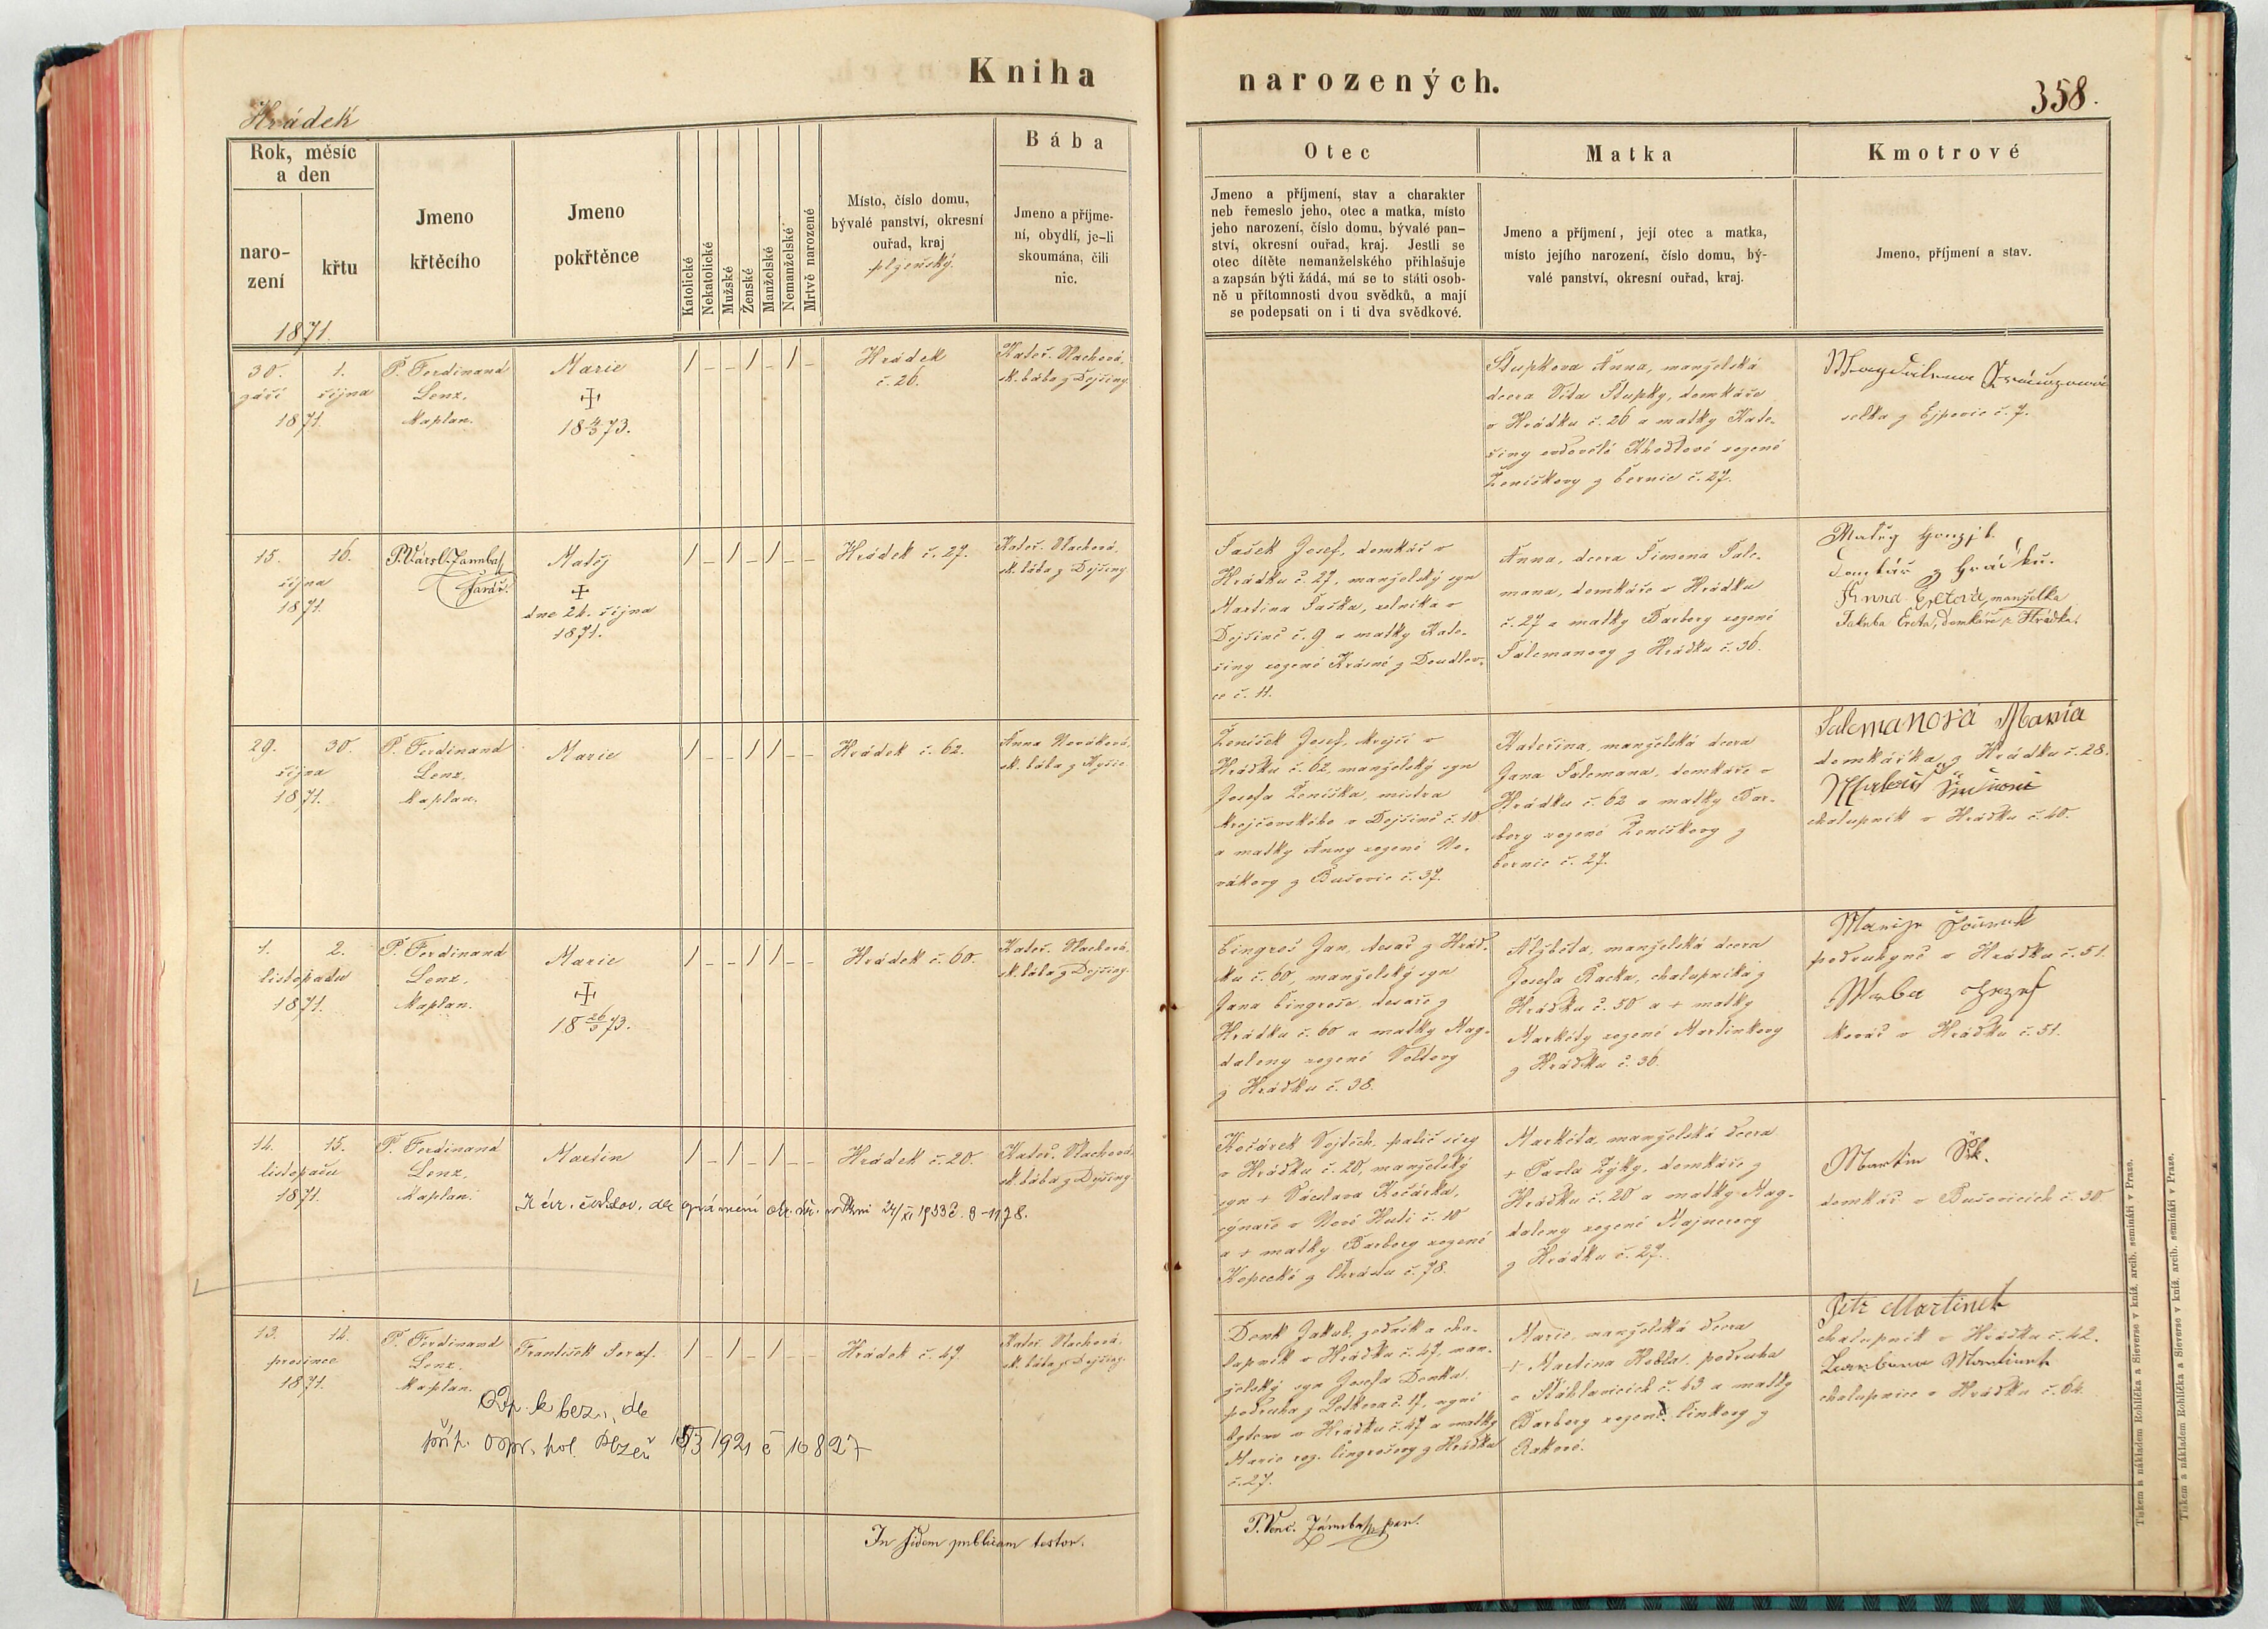 Kniha
narozených.
358.
Hrádek
Rok, měsíc
a den
naro-
zení
křtu
1871.
Jmeno
křtěcího
Jmeno
pokřtěnce
Katolické
Nekatolické
Mužské
Ženské
Manželské
Nemanželské
Mrtvě narozené
Místo, číslo domu,
bývalé panství, okresní
ouřad, kraj
plzeňský.
Bába
Jmeno a příjme-
ní, obydlí, je-li
skoumána, čili
nic.
Otec
Jmeno a příjmení, stav a charakter
neb řemeslo jeho, otec a matka, místo
jeho narození, číslo domu, bývalé pan-
ství, okresní ouřad, kraj. Jestli se
otec dítěte nemanželského přihlašuje
a zapsán býti žádá, má se to státi osob-
ně u přítomnosti dvou svědků, a mají
se podepsati on i ti dva svědkové.
Matka
Jmeno a příjmení, její otec a matka,
místo jejího narození, číslo domu, bý-
valé panství, okresní ouřad, kraj.
Kmotrové
Jmeno, příjmení a stav.
30. 1.
září října
1871.
P. Ferdinand
Lenz,
kaplan.
Marie
18 73.
Hrádek
č. 26.
Kateř. Vlachová,
sk. bába z Dejšiny
Štupkova Anna, manželská
dcera Víta Štupky, domkáře
v Hrádku č. 26 a matky Kate-
řiny ovdovělé rozené
Ženíškovy z Černic č. 27.
Magdalena
selka z Ejpovic č. 7.
15. 16.
října
1871.
farář.
Matěj
dne 24. října
1871.
Hrádek č. 27.
Kateř. Vlachová,
sk. bába z Dejšiny
Fašek Josef, domkář v
Hrádku č. 27, manželský syn
Martina Faška, rolníka v
Dejšině č. 9 a matky Kate-
řiny rozené Krásné z Doudlev-
ce č. 11.
Anna, dcera Šimona Sale-
mana, domkáře v Hrádku
č. 27 a matky Barbory rozené
Salemanovy z Hrádku č. 36.
Matěj
domkář z Hrádku.
Anna manželka
Jakuba domkáře z Hrádku.
29. 30.
října
1871.
P. Ferdinand
Lenz,
kaplan.
Marie
Hrádek č. 62.
Anna Nováková,
sk. bába z Kyšic
Ženíšek Josef, krejčí v
Hrádku č. 62, manželský syn
Josefa Ženíška, mistra
krejčovského v Dejšině č. 10
a matky Anny rozené No-
vákovy z Bušovic č. 37.
Kateřina, manželská dcera
Jana Salemana, domkáře v
Hrádku č. 62 a matky Bar-
bory rozené Ženíškovy z
Černic č. 27.
Salemanová Maria
domkářka z Hrádku č. 28.
chalupník v Hrádku č. 40.
1. 2.
listopadu
1871.
P. Ferdinand
Lenz,
kaplan.
Marie
18 26/3 73.
Hrádek č. 60.
Kateř. Vlachová,
sk. bába z Dejšiny
Cingroš Jan, tesař z Hrád-
ku č. 60, manželský syn
Jana Cingroše, tesaře z
Hrádku č. 60 a matky Mag-
daleny rozené
z Hrádku č. 38.
Alžběta, manželská dcera
Josefa Racka, chalupníka z
Hrádku č. 50 a + matky
Markéty rozené Martínkovy
z Hrádku č. 36.
podruhyně v Hrádku č. 51.
kovář v Hrádku č. 51.
14. 15.
listopadu
1871.
P. Ferdinand
Lenz,
kaplan.
Martin
Hrádek č. 20.
Kateř. Vlachová,
sk. bába z Dejšiny
24/XI 1933 č. 8-1178.
Kočárek Vojtěch, palič síry
v Hrádku č. 20, manželský
syn + Václava Kočárka,
v Nové Huti č. 10
a + matky Barbory rozené
Kopecké z Chrástu č. 78.
Markéta, manželská dcera
+ Pavla Zýky, domkáře z
Hrádku č. 20 a matky Mag-
daleny rozené Majnerovy
z Hrádku č. 27.
Martin
domkář v Bušovicích č. 30
13. 14.
prosince
1871.
P. Ferdinand
Lenz,
kaplan.
František Seraf.
Hrádek č. 47.
Kateř. Vlachová,
sk. bába z Dejšiny
Odp. k bezv. dle
příp. pol. Plzeň 1921 č 10827
Donk Jakub, zedník a cha-
lupník v Hrádku č. 47, man-
želský syn Josefa Donka,
podruha z Letkova č. 17, nyní
bytem v Hrádku č. 47 a matky
Marie roz. Cingrošovy z Hrádku
č. 27.
Marie, manželská dcera
+ Martina podruha
v Štáhlavicích č. 63 a matky
Barbory rozené Cinkovy z
Rakové.
Petr Martinek
chalupník v Hrádku č. 42.
chalupnice v Hrádku č. 64.
In fidem publicam testor.
Tiskem a nákladem Rohlíčka a Sieverse v kníž. arcib. semináři v Praze.
Tiskem a nákladem Rohlíčka a Sieverse v kníž. arcib. semináři v Praze.